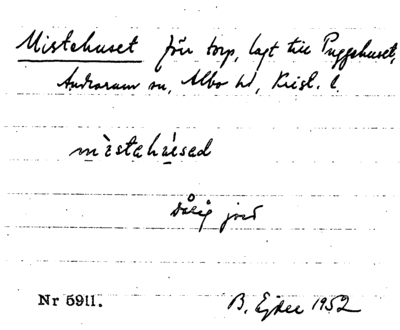 Mistehuset förr torp, lagt till Puggehuset,
Andrarum sn, Albo hd, Krist. l.
mìstehúsed
Dålig jord
Nr 5911. B. Ejder 1952